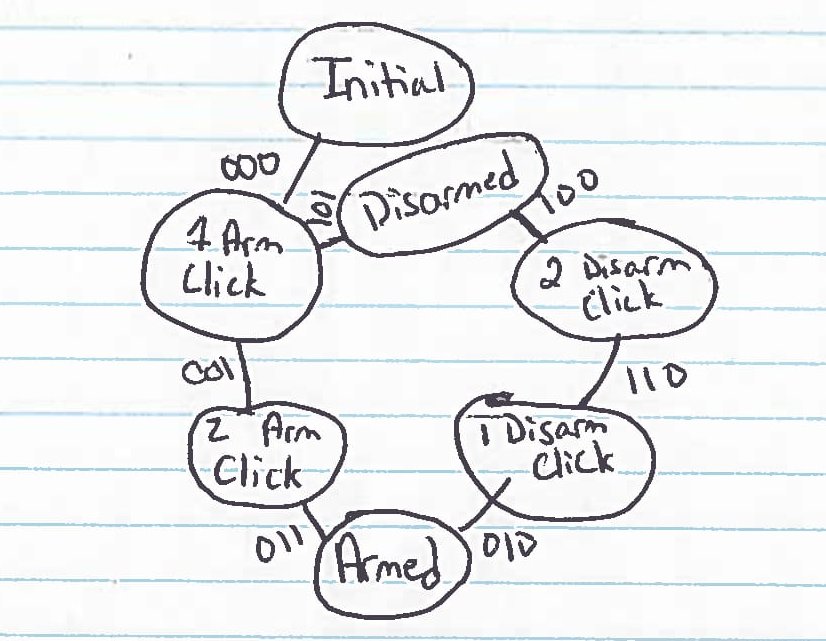 Initial
000
101
Disarmed
100
1 Arm
Click
2 Disarm
Click
001
110
2 Arm
Click
1 Disarm
Click
011
Armed
010